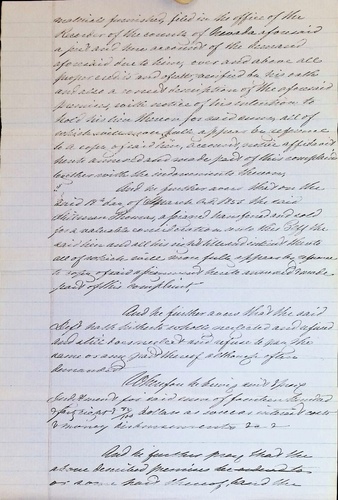 materials furnished, filed in the office of the
Recorder of the county of Nevada aforesaid
a just and true account of the demand
aforesaid due to him, over and above all
just credits and offsets, verified by his oath
and also a correct description of the aforesaid
premises, with notice of his intention to
hold his lien thereon for said sums, all of
which will more fully appear by reference
to a copy of said lien, account, notice affidavit
hereto annexed and made part of this complaint
together with the indorsements thereon
And he further avers that on the
said day of March A.D. 185 the said
Thomas, assigned transfered and sold
for a valuable consideration unto this Plff the
said lien and all his right title and interest therein
all of which will more fully appear by reference
to copy of said assignment hereto annexed & made
part of this complaint,
And he further avers that the said
Deft hath hitherto wholly neglected and refused
and still doth neglect and refuse to pay the
same or any part thereof although often
demanded
Wherefore he brings suit & prays
Judgment for said sum of fourteen hundred
& forty eight dollars as once interest costs
& money disbursements &c &
And he further prays that the
above described premises be
or some part thereof, and the